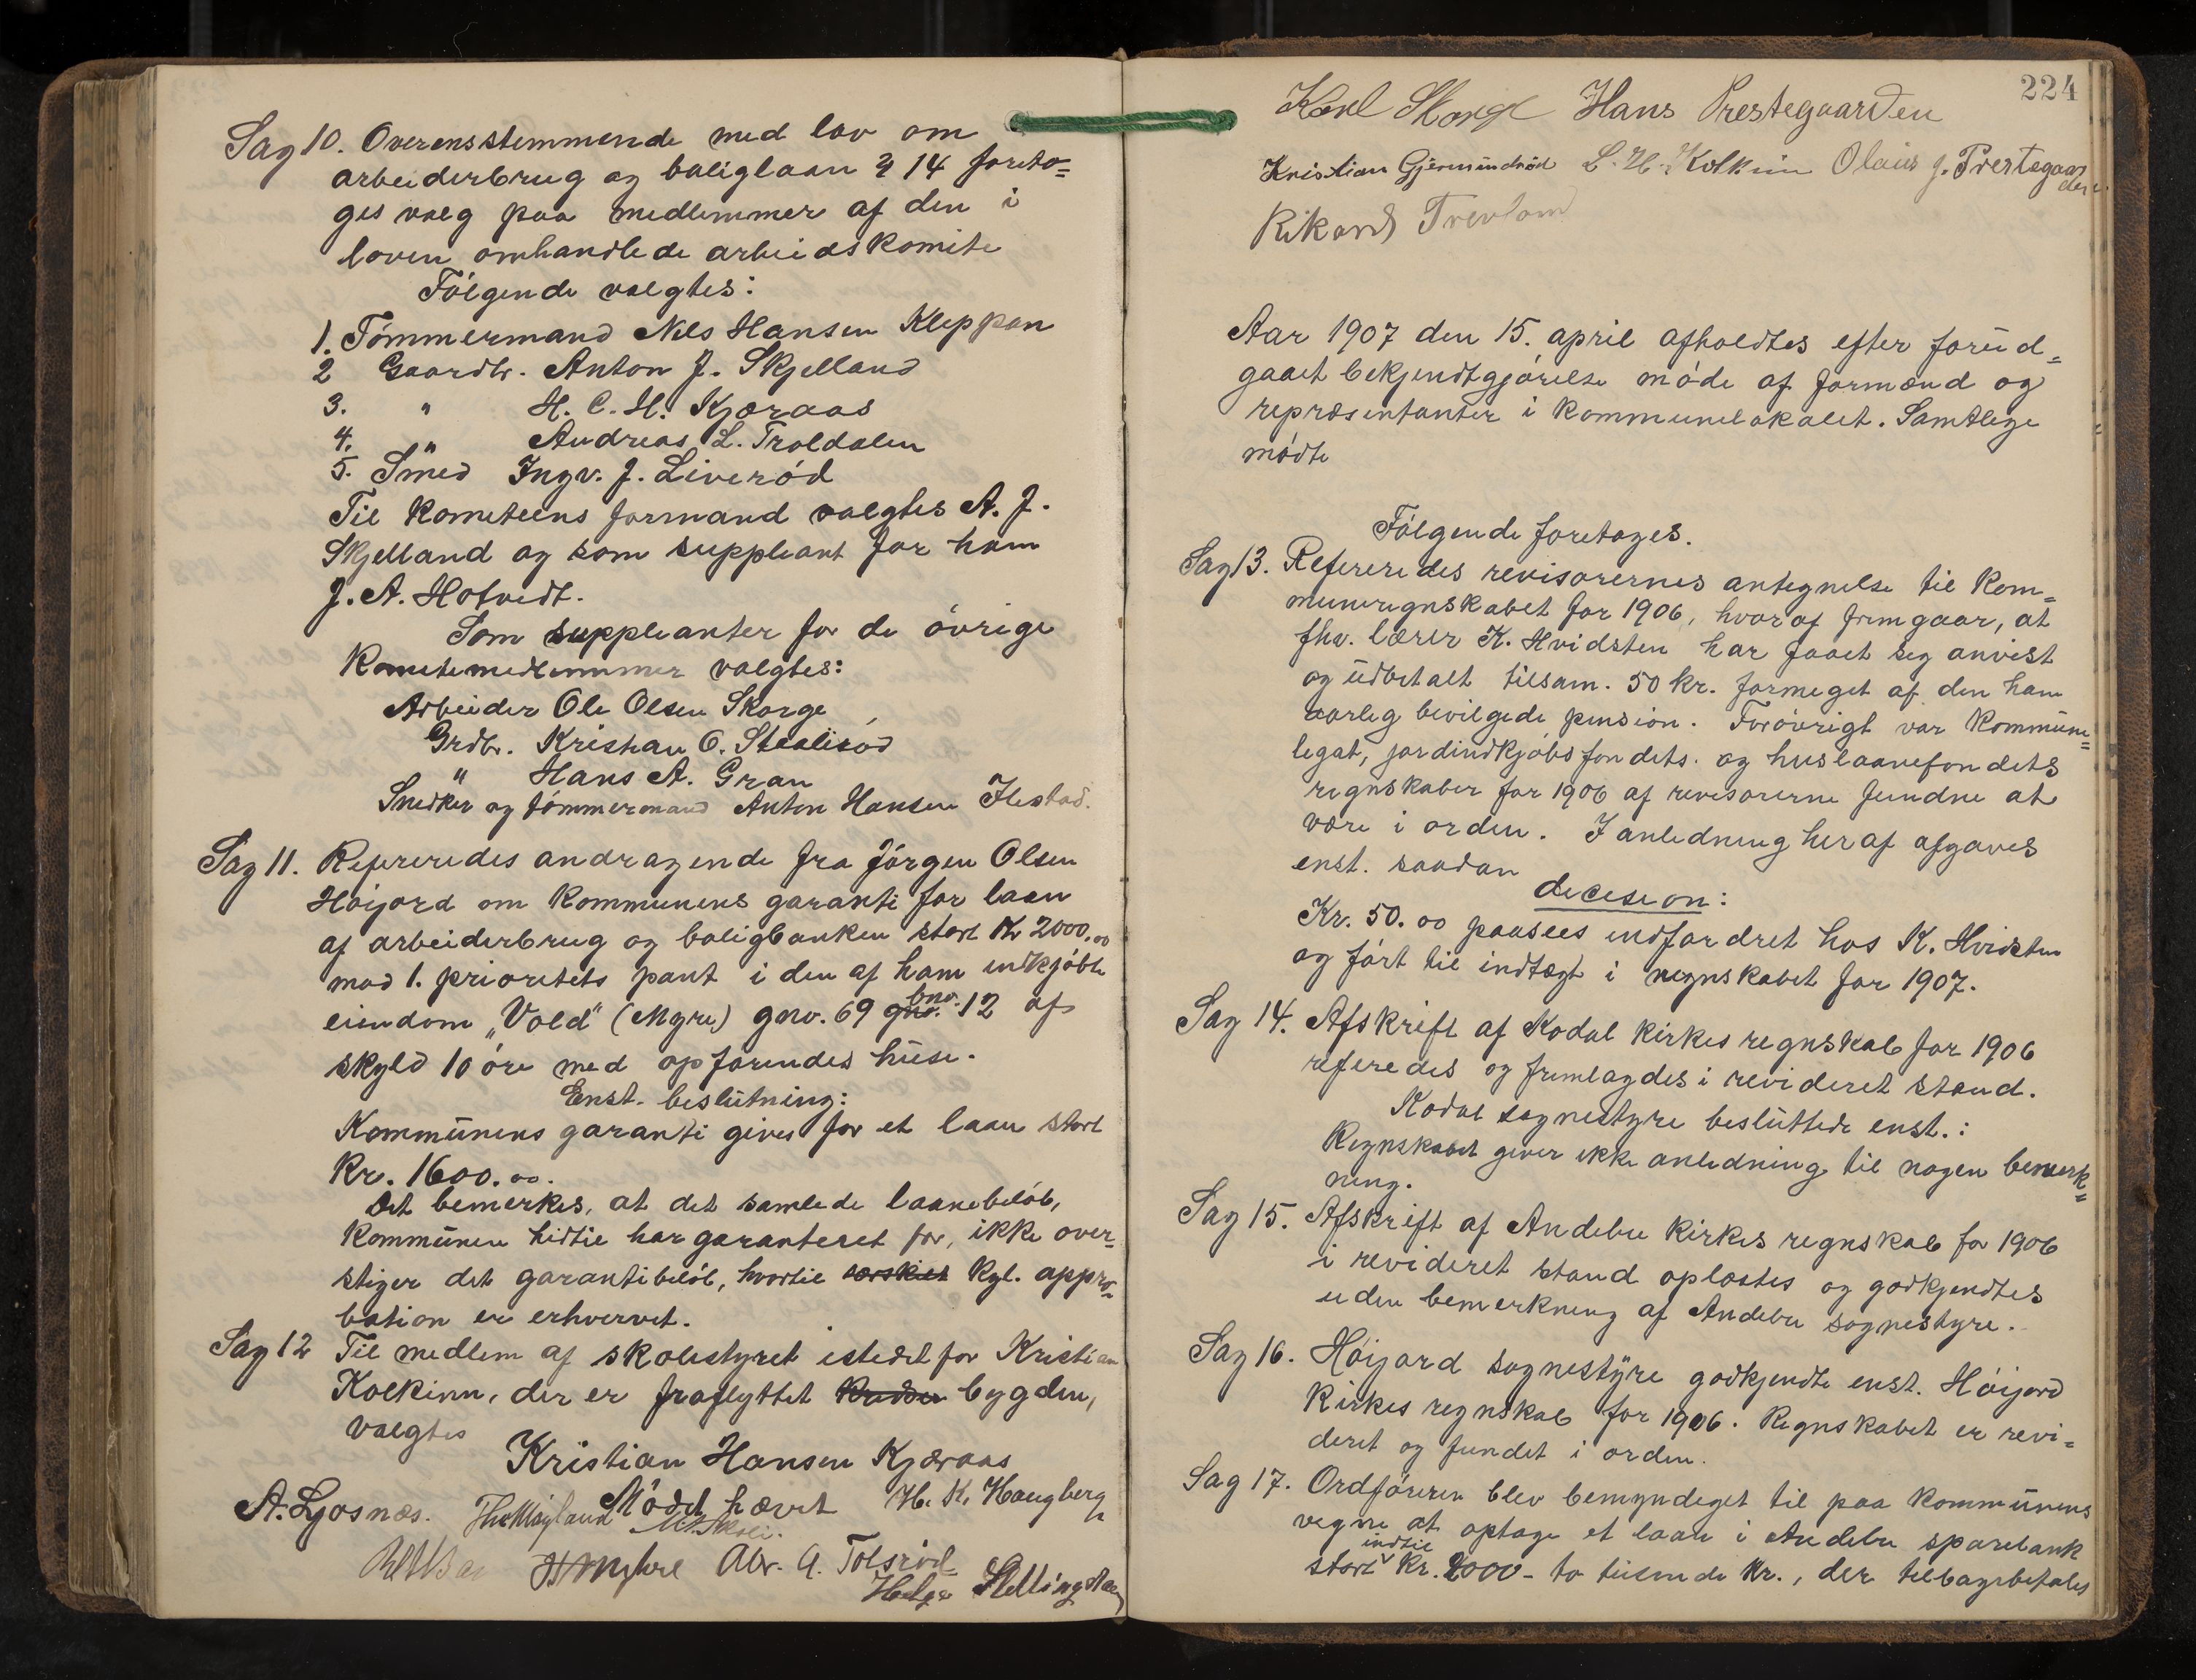 Sag 10. Overensstemmende med lov om
arbeiderbrug og boliglaan § 14 foreto=
ges valg paa medlemmer af den i
loven omhandlede arbeidskomite
Følgende valgtes:
1. Tømmermand Nils Hansen Kleppan
2 Gaardbr. Anton J. Skjelland
3. " H. C. H. Kjæraas
4. " Andreas L. Troldalen
5. Smed Ingv. J. Liverød
Til Komiteens formand valgtes A. J.
Skjelland og som suppleant for ham
J. A. Hotvedt.
Som suppleanter for de øvrige
Komitemedlemmer valgtes:
Arbeider Ole Olsen Skorge
Grdbr. Kristian O. Stulisød
" Hans A. Gran
Snedker og tømmermand Anton Hansen Ilestad.
Sag 11. Refereredes andragende fra Jørgen Olsen
Høijord om Kommunens garanti for laan
af arbeiderbrug og boligbanken stort Kr 2000.00
mod 1. prioritets pant i den af ham indkjøbte
eiendom „Vold" (Myre) gno. 69 gno. bno. 12 af
skyld 10 øre med opførendes huse.
Enst. beslutning:
Kommunens garanti gives for et laan stort
Kr. 1600.00.
Det bemerkes, at det samlede laanebeløb,
Kommunen hidtil har garanteret for, ikke over-
stiger det garantibeløb, hvortil særskilt Kgl. appro=
bation er erhvervet.
Sag 12 Til medlem af skolestyret istedet for Kristian
Kolkinn, der er fraflyttet bygden,
valgtes
Kristian Hansen Kjæraas
Mødet hævet
A. Ljosnæs. Th. Møyland H. K. Haugberg
H Myhre Abr. A. Tolsrød
Helge Stellingstad
224
Karl Skorge Hans Prestegaarden
Kristian Gjermundrød L. H. Kolkinn Olaus J. Prestegaarden
Rikard Trevland
Aar 1907 den 15. april afholdtes efter forud=
gaaet bekjendtgjørelse møde af formænd og
repræsentanter i Kommunelokalet. Samtlige
mødte
Følgende foretages.
Sag 13. Refereredes revisorernes antegnelse til Kom=
muneregnskabet for 1906, hvoraf fremgaar, at
fhv. lærer K. Hvidsten har faaet seg anvist
og udbetalt tilsam. 50 kr. formeget af den ham
aarleg bevilgede pension. Forøvrigt var Kommune=
legat, jordindkjøbsfondets og huslaanefondets
regnskaber for 1906 af revisorerne fundne at
være i orden. I anledning heraf afgaves
enst. saadan
decesion:
Kr. 50.00 paasees indfordret hos K. Hvidsten
og ført til indtægt i regnskabet for 1907.
Sag 14. Afskrift af Kodal Kirkes regnskab for 1906
referedes og fremlagdes i revideret stand.
Kodal sognestyre besluttede enst.:
Regnskabet giver ikke anledning til nogen bemerk=
ning.
Sag 15. Afskrift af Andebu Kirkes regnskab for 1906
i revideret stand oplæstes og godkjendtes
uden bemerkning af Andebu sognestyre.
Sag 16. Høijord sognestyre godkjendte enst. Høijord
Kirkes regnskab for 1906. Regnskabet er revi=
deret og fundet i orden.
Sag 17. Ordføreren blev bemyndiget til paa Kommunens
vegne at optage et laan i Andebu sparebank
stort indtil Kr. 2000 - to tusende Kr., der tilbagebetales